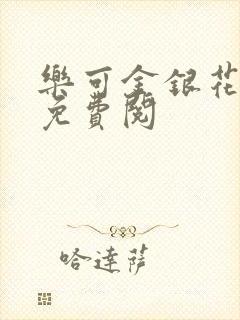 樂可金銀花
免費閱
哈達薩